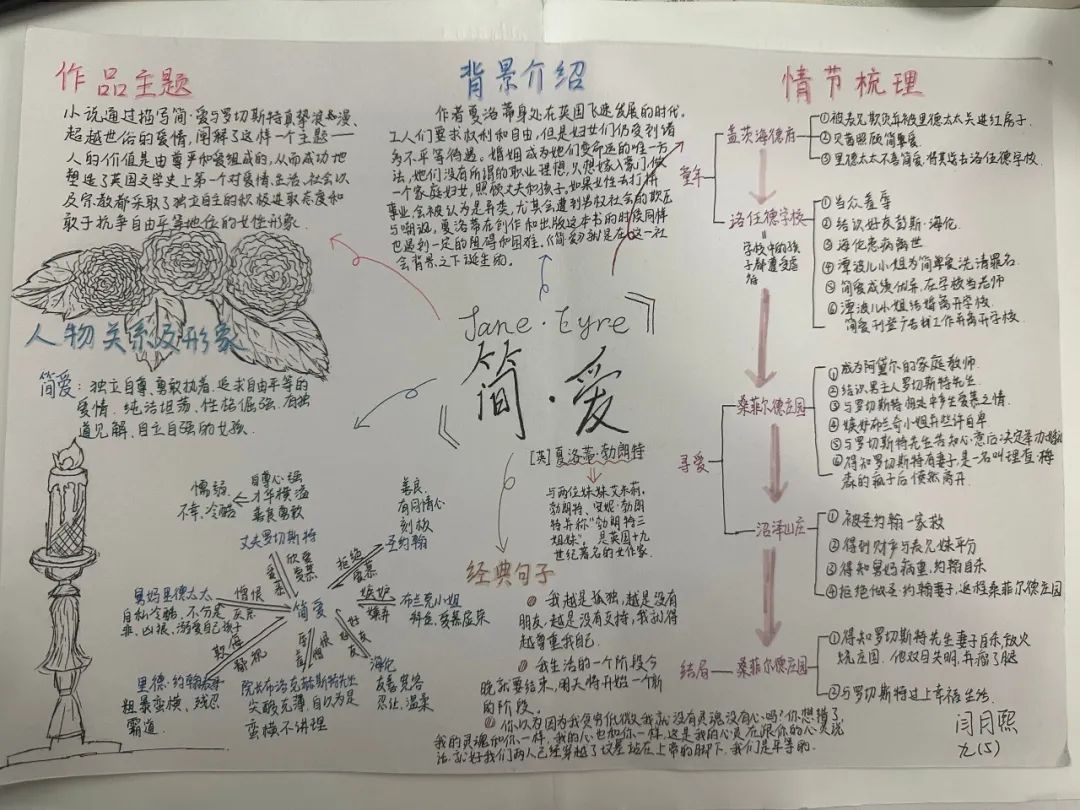 作品主题
小说通过描写简·爱与罗切斯特真挚浪漫、
超越世俗的爱情，阐释了这样一个主题——
人的价值是由尊严和爱组成的，从而成功地
塑造了英国文学史上第一个对爱情、生活、社会以
及宗教都采取了独立自主的积极进取态度和
敢于抗争自由平等地位的女性形象
人物关系及形象
简爱：独立自尊、勇敢执着、追求自由平等的
爱情、纯洁坦荡、性格倔强、有独
道见解、自立自强的女孩.
懦弱
不幸、冷酷
自尊心强
才华横溢
善良勇敢
丈夫罗切斯特
善良、
有同情心
刻板
圣约翰
欣爱
爱慕
拒绝
爱慕
舅妈里德太太
自私冷酷、不分是
非、凶狠、溺爱自己孩子
憎恨
简爱
嫉妒
嫌弃
布兰克小姐
好友
里德·约翰
粗暴蛮横、残忍
霸道.
欺侮
院长布洛克赫斯特先生
尖酸刻薄、自以为是
蛮横不讲理
憎恨
海伦
友善宽容
忍让、温柔
背景介绍
作者夏洛蒂身处在英国飞速发展的时代，
工人们要求权利和自由，但是妇女们仍受到诸
多不平等待遇。婚姻成为她们变命运的唯一方
法，她们没有所谓的职业理想，只想嫁入豪门做
一个家庭妇女，照顾丈夫和孩子。如果女性去打拼
事业，会被认为是异类，尤其会遭到男权社会的欺压
与嘲讽，夏洛蒂在创作和出版这本书的时候同样
也遇到一定的阻碍和困难。《简爱》就是在这一社
会背景之下诞生的。
Jane·Eyre》
《简·爱
[英]夏洛蒂·勃朗特
与两位妹妹艾米莉。
勃朗特、安妮·勃朗
特并称"勃朗特三
姐妹"，是英国十九
世纪著名的女作家.
经典句子
我越是孤独，越是没有
朋友，越是没有支持，我就得
越尊重我自己.
我生活的一个阶段今
晚就要结束，明天将开始一个新
的阶段。
你以为因为我贫穷低微我就没有灵魂没有心吗？你想错了，
我的灵魂和你一样，我的心也和你一样，这是我的心灵在跟你的心灵说
话，就好我们两人已经穿越了坟墓站在上帝的脚下，我们是平等的.
情节梳理
童年
盖茨海德府
①被表兄欺负却被里德太太关进红房子.
②贝茜照顾简爱.
③里德太太不喜简爱，将其送去洛伍德学校.
洛伍德学校
学校中的孩
子都遭受虐
待
①当众羞辱
②结识好友彭斯·海伦.
③海伦患病离世
④潭波儿小姐为简爱洗清罪名.
⑤简爱成绩优异，在学校当老师
⑥潭波儿小姐结婚离开学校.
简爱刊登广告找工作并离开学校.
寻爱
桑菲尔德庄园
①成为阿黛尔的家庭教师
②结识男主人罗切斯特先生.
③与罗切斯特相处中产生爱慕之情.
④嫉妒布兰奇小姐并些许自卑
⑤与罗切斯特先生告知心意后决定举办婚礼
⑥得知罗切斯特有妻子，是一名叫理查·梅
森的疯子后愤然离开.
沼泽山庄
①被圣约翰一家救
②得到财产与表兄妹平分
③得知舅妈病重，约翰自杀
④拒绝做圣约翰妻，返程桑菲尔德庄园
结局
桑菲尔德庄园
①得知罗切斯特先生妻子自杀，放火
烧庄园.他双目失明，并瘸了腿
②与罗切斯特过上幸福生活.
闫月熙
九(5)